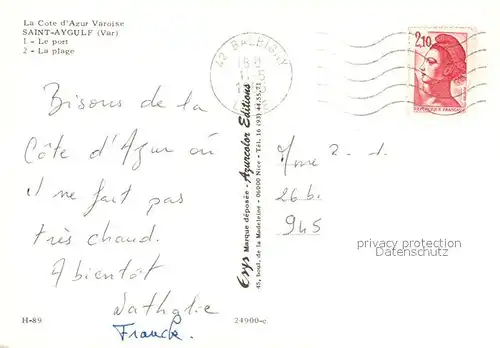 La Cote d'Azur Varoise
SAINT-AYGULF (Var)
1 - Le port
2 - La plage
42 BALBIGNY
LOIRE
2,10
REPUBLIQUE FRANÇAISE
Bisous de la
Côte d'Azur où
il ne fait pas
très chaud.
A bientôt
Nathalie
Franck.
Erys Marque déposée - Azurcolor Editions
45, boul. de la Madeleine - 06000 Nice - Tél. 16 (93) 44.55.71
Mme 2 - 1.
26 b.
945
privacy protection
Datenschutz
H-89
24900-c